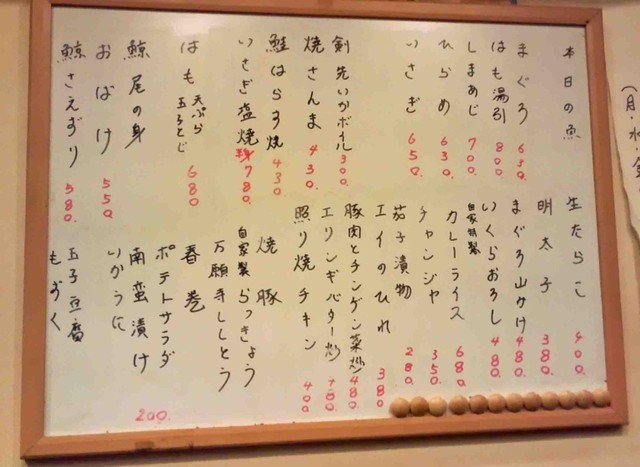 本日の魚
まぐろ 630.
はも湯引 800.
しまあじ 700.
ひらめ 630.
いさき 650.
剣先いかボイル 300.
焼さんま 430.
鮭はらす焼 430
いさぎ塩焼 780.
はも 天ぷら 玉子とじ 680
鯨尾の身
おばけ 550
鯨さえずり 580.
生たらこ 400.
明太子 380.
まぐろ山かけ 480.
いくらおろし 480.
自家特製カレーライス 680
チャンジャ 350.
茄子漬物 280.
エイのひれ 380
豚肉とチンゲン菜炒 480.
エリンギバター炒 480.
照り焼チキン 400
焼豚
自家製らっきょう
万願寺ししとう
春巻
ポテトサラダ
南蛮漬け
いかうに
玉子豆腐
もずく
200.
(月・水・金